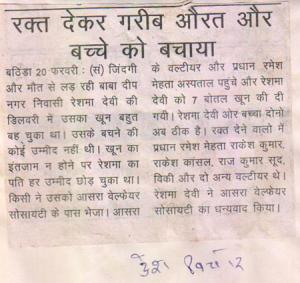 रक्त देकर गरीब औरत और
बच्चे को बचाया
बठिंडा 20 फरवरी : (सं) जिंदगी
और मौत से लड़ रही बाबा दीप
नगर निवासी रेशमा देवी की
डिलवरी में उसका खून बहुत
बह चुका था। उसके बचने की
कोई उम्मीद नहीं थी। खून का
इंतजाम न होने पर रेशमा का
पति हर उम्मीद छोड़ चुका था।
किसी ने उसको आसरा वेल्फेयर
सोसायटी के पास भेजा। आसरा
के वल्टीयर और प्रधान रमेश
मेहता अस्पताल पहुंचे और रेशमा
देवी को 7 बोतल खून की दी
गयी। रेशमा देवी ओर बच्चा दोनों
अब ठीक है। रक्त देने वालो में
प्रधान रमेश मेहता राकेश कुमार,
राकेश कांसल, राज कुमार सूद,
विकी और दो अन्य वल्टीयर थे।
रेशमा देवी ने आसरा वेल्फेयर
सोसायटी का धन्यवाद किया।